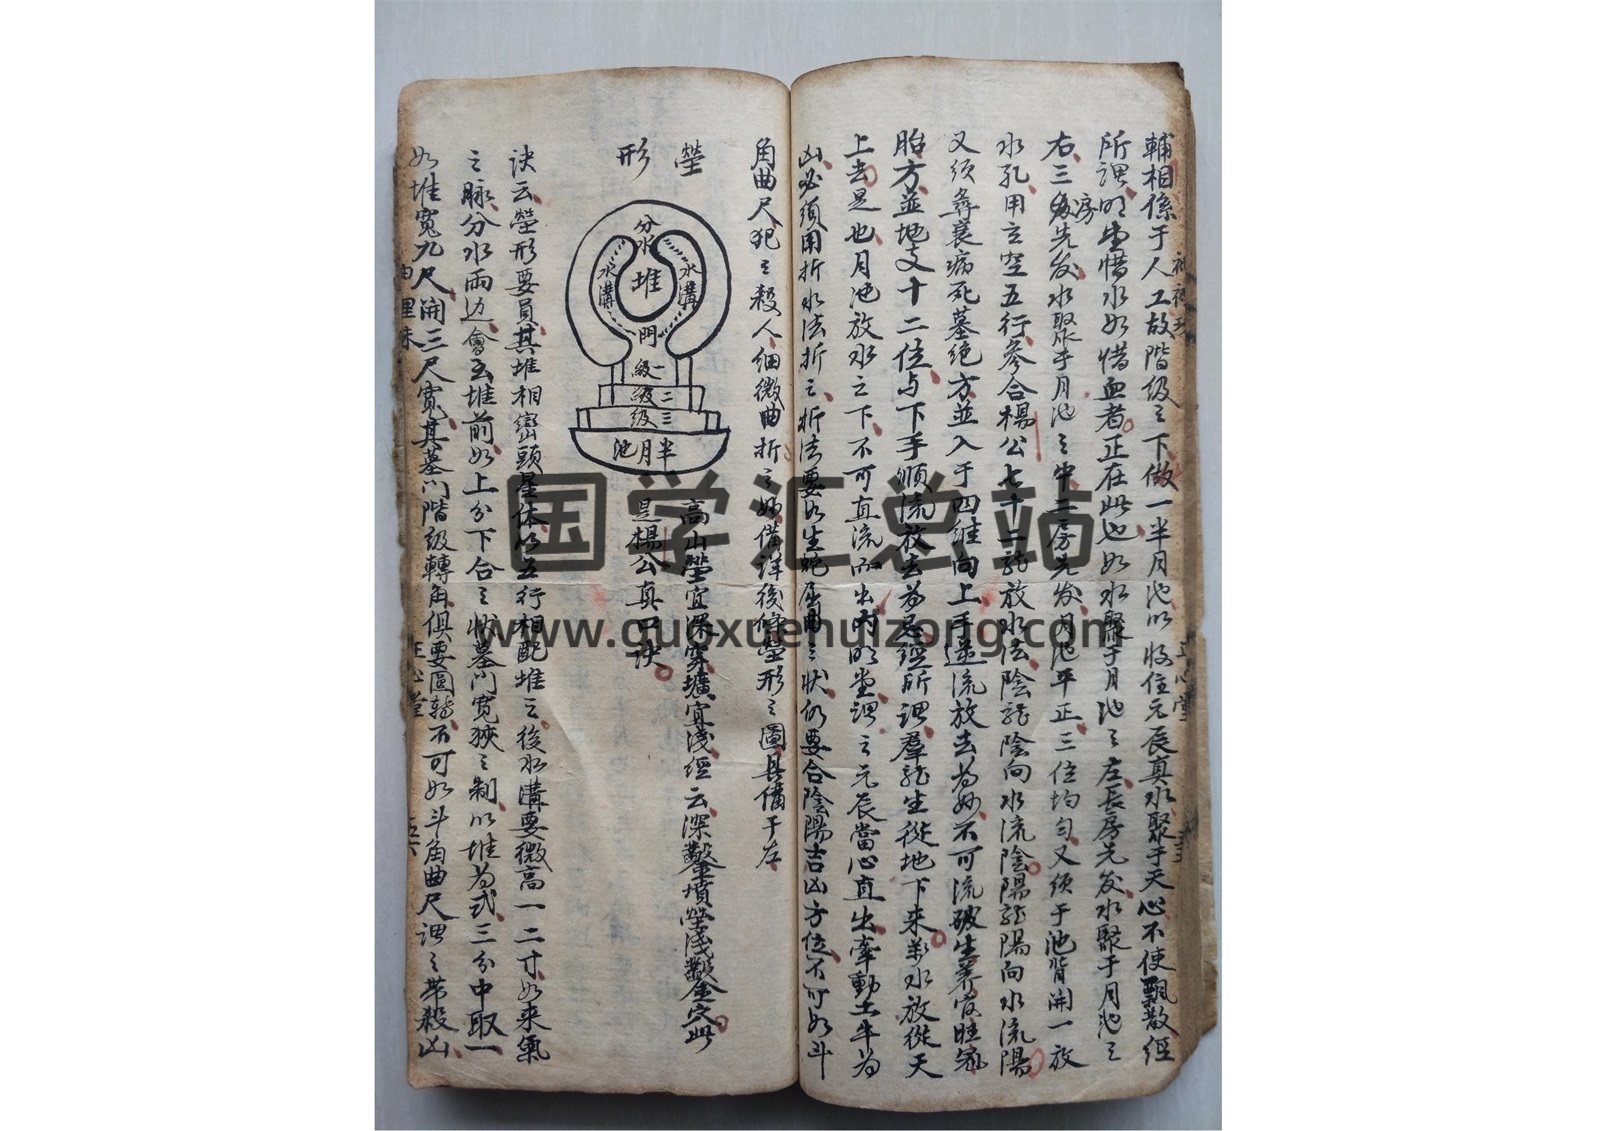 輔相係于人工故階級之下做一半月池以收住元辰真水聚于天心不使飄散經
所謂明堂惜水如惜血者正在此也如水聚于月池之左長房先发水聚于月池之
右三房先发水聚于月池之中二房先发月池平正三位均匀又须于池背開一放
水孔用立空五行參合楊公七十二龍放水法陰龍陰向水流陰陽龍陽向水流陽
又须尋衰病死墓绝方並入于四維向上手逆流放去為妙不可流破生养官旺冠
胎方並地支十二位与下手顺流放去為忌經所謂羣龍生從地下来萬水放從天
上去是也月池放水之下不可直流而出内明堂謂之元辰當心直出牽動土牛为
凶必須用折水法折之折法要如生蛇屈曲之状仍要合陰陽吉凶方位不可如斗
角曲尺犯之殺人細微曲折之妙備詳後條塋形之圖具備于左
塋形
分水
水溝
堆
水溝
門
一級
二級
三級
半月池
高山塋宜深穿壙宜淺經云深鑿墳塋淺鑿金穴此
是楊公真口诀
诀云塋形要員其堆相巒頭星体以五行相配堆之後水溝要微高一二寸如来氣
之脉分水兩边會于堆前如上分下合之状墓门寬狹之制以堆为式三分中取一
如堆寬九尺開三尺寬其墓门階級轉角俱要圆转不可如斗角曲尺謂之带殺凶
国学汇总站
www.guoxuehuizong.com